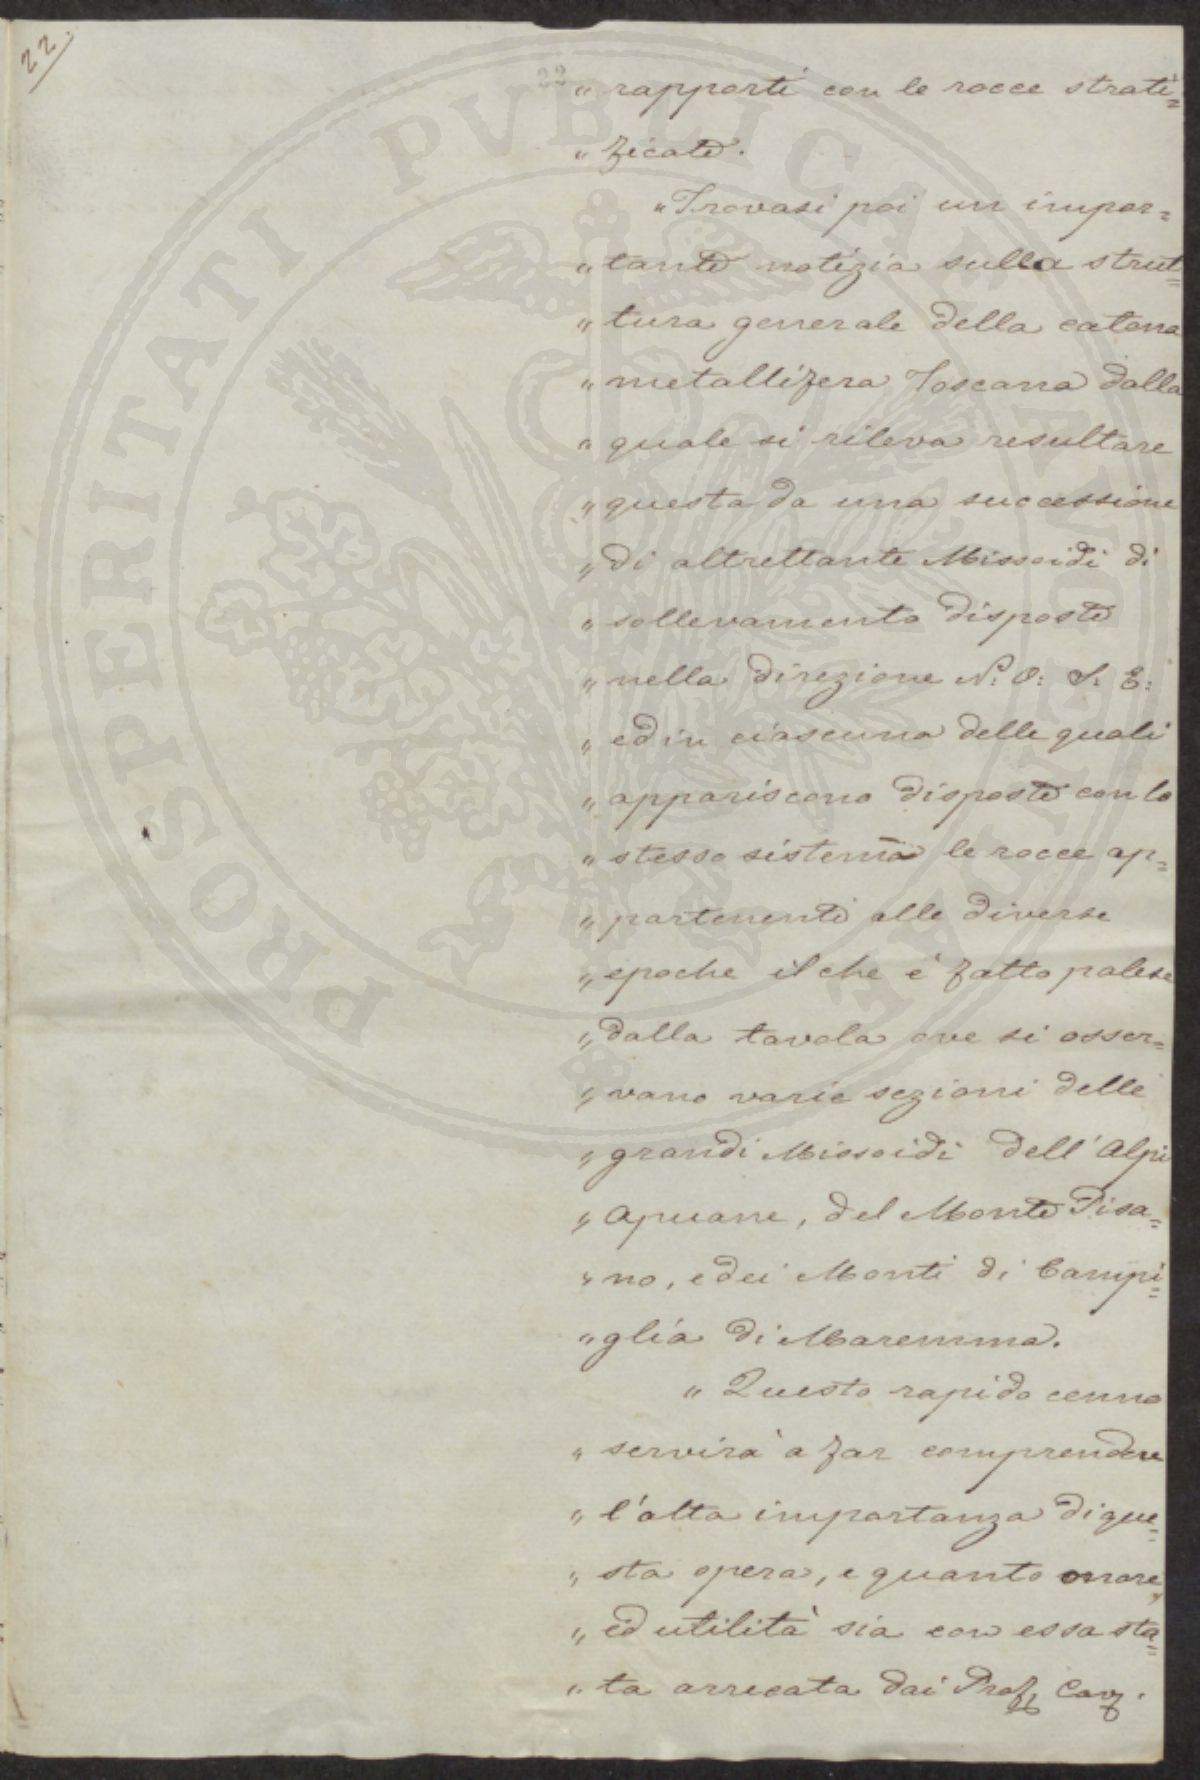 22.
22
„ rapporti con le rocce strati=
„ ficate.
„ Trovasi poi un impor=
„ tante notizia sulla strut=
„ tura generale della catena
„ metallifera Toscana dalla
„ quale si rileva resultare
„ questa da una successione
„ di altrettante Missoidi di
„ sollevamento disposte
„ nella direzione N: O: S: E:
„ ed in ciascuna delle quali
„ appariscono disposte con lo
„ stesso sistema le rocce ap=
„ partenenti alle diverse
„ epoche il che è fatto palese
„ dalla tavola ove si osser=
„ vano varie sezioni delle
„ grandi Missoidi dell'Alpi
„ Apuane, del Monte Pisa=
„ no, e dei Monti di Campi=
„ glia di Maremma.
„ Questo rapido cenno
„ servirà a far comprendere
„ l'alta importanza di que=
„ sta opera, e quanto onore,
„ ed utilità sia con essa sta=
„ ta arrecata dai Proff. Cav.
PROSPERITATI PVBLICAE AVGENDAE